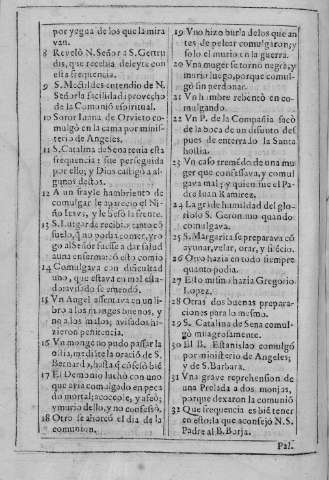 por yegua de los que la mira
van.
8 Revelò N. Señor a S. Gertru
dis, que recebia deleyte con
esta frequencia.
9 S. Mectildes entendio de N.
Señor la facilidad i provecho
de la Comuniō espiritual.
10 Soror Iuana de Orvieto co-
mulgò en la cama por minis-
terio de Angeles.
11 S. Catalina de Sena tenia esta
frequencia: fue perseguida
por ello; y Dios castigò a al-
gunos destos.
12 A un frayle hambriento de
comulgar le aparecio el Ni-
ño Iesus, y le besò la frente.
13 S. Lutgarde recibia tanto cō
suelo, que no podia comer, y ro
go al Señor fuesse a dar salud
a una enferma, co esto comio
14 Comulgava con dificultad
uno, que estava en mal esta-
do: avisado se amendò.
15 Vn Angel assentava en un li-
bro a los monges buenos, y
no a los malos; avisados hi-
zieron penitencia.
16 Vn monge no pudo passar la
ostia, mediāte la oraciō de S.
Bernardo, hasta q̄ cōfessò biē
17 El Demonio luchò con uno
que avia comulgado en peca
do mortal; acocole, y afeò;
y murio dello, y no confessò.
18 Otro se ahorcò el dia de la
comunion.
19 Vno hizo burla de los que an
tes de pelear comulgaron; y
solo el murio en la guerra.
20 Vna muger se tornò negra, y
murio luego, porque comul-
gò sin perdonar.
21 Vn hombre rebentò en co-
mulgando.
22 Vn P. de la Compañia sacò
de la boca de un difunto des
pues de enterrado la Santa
Hostia.
23 Vn caso tremēdo de una mu
ger que confessava, y comul
gava mal; y quien fue el Pa-
dre Iuan Ramirez.
24 La grande humildad del glo-
rioso S. Geronimo quando
comulgava.
25 S. Margarita se preparava cō
ayunar, velar, orar, y silēcio.
26 Otro hazia en todo tiempre
quanto podia.
27 Esto mismo hazia Gregorio
Lopez.
28 Otras dos buenas prepara-
ciones para lo mesmo.
29 S. Catalina de Sena comul-
gò milagrosamente.
30 El B. Estanislao comulgò
por ministerio de Angeles;
y de S. Barbara.
31 Vna grave reprehension de
una Prelada a dos monjas,
porque dexaron la comuniō
32 Que frequencia es biē tener
en esto: la que aconsejò N. S.
Padre al B. Borja.
Pal.